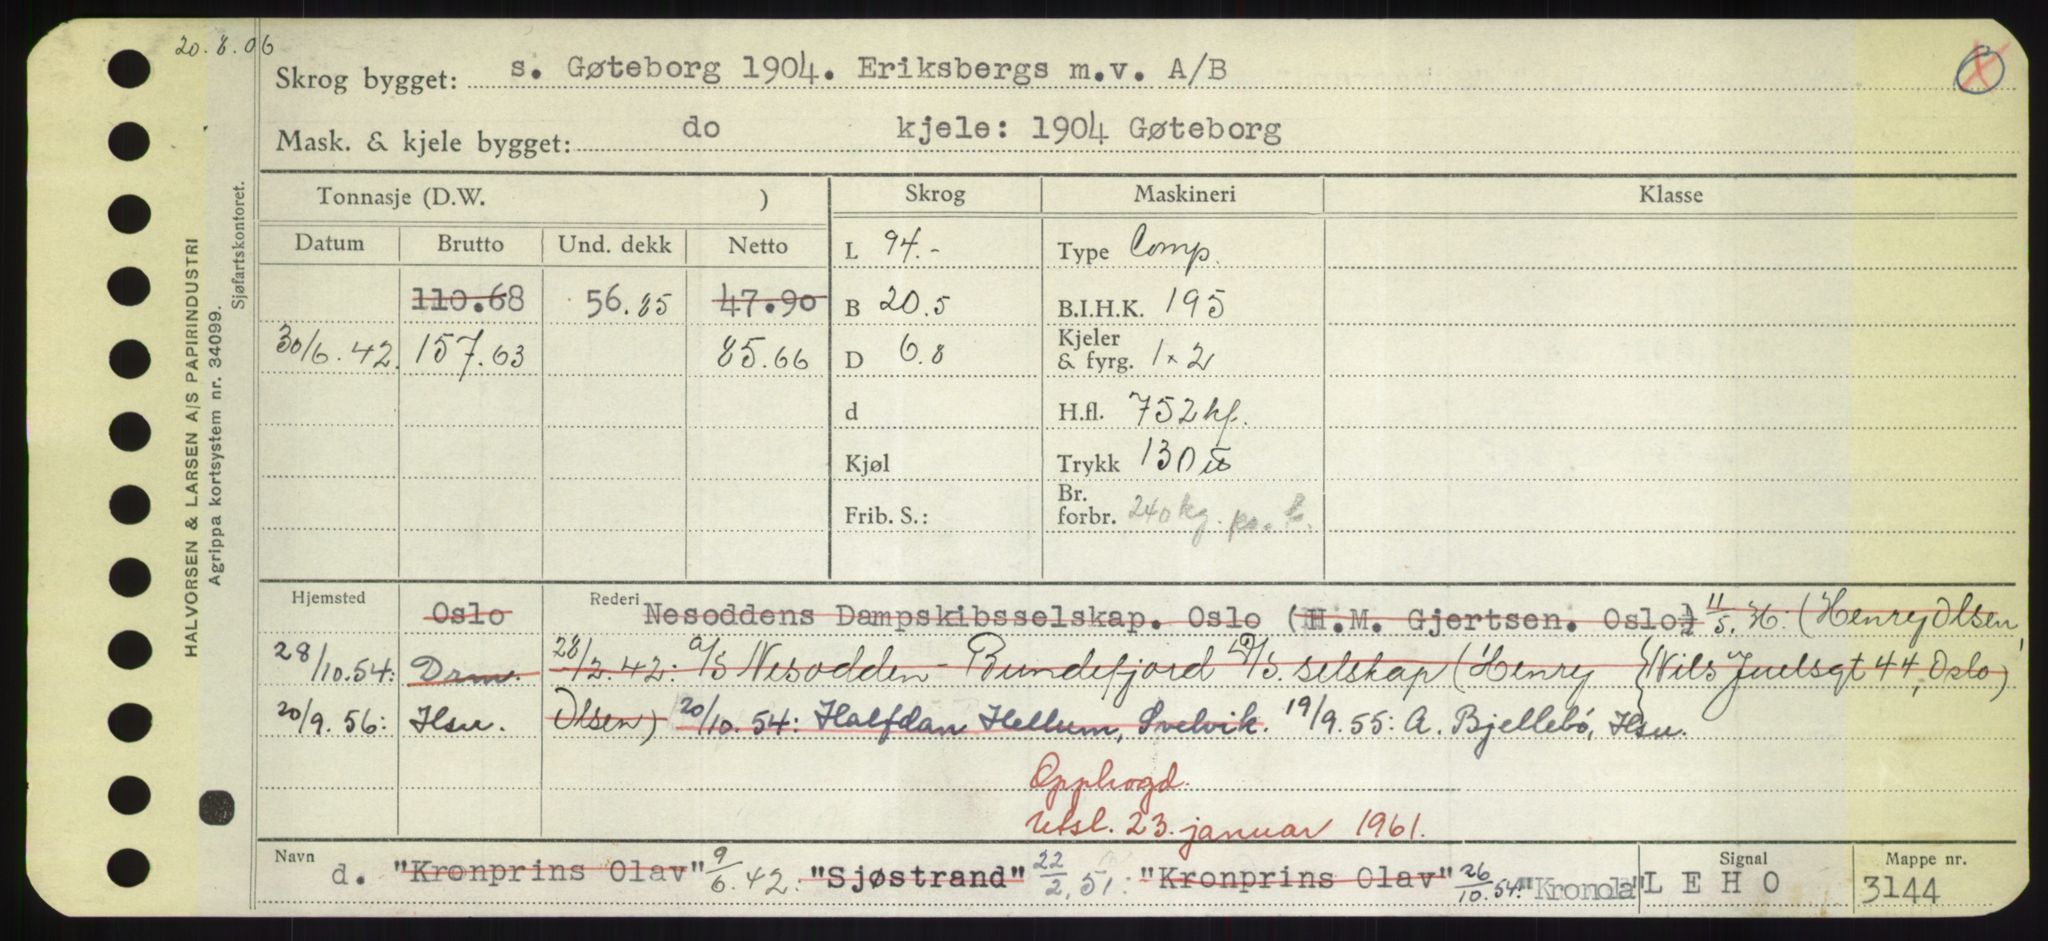 20.8.06
Skrog bygget: s. Gøteborg 1904. Eriksbergs m.v. A/B
Mask. & kjele bygget: do kjele: 1904 Gøteborg
HALVORSEN & LARSEN A/S PAPIRINDUSTRI
Agrippa kortsystem nr. 34099.
Sjøfartskontoret.
Tonnasje (D.W. ) Skrog Maskineri Klasse
Datum Brutto Und. dekk Netto L 94.- Type Comp.
110.68 56.85 47.90 B 20.5 B.I.H.K. 195
30/6.42. 157.63 85.66 D 6.8 Kjeler & fyrg. 1 x 2
d H.fl. 752 kf.
Kjøl Trykk 130
Frib. S.: Br. forbr. 240 kg. pr. t.
Hjemsted Oslo Rederi Nesoddens Dampskibsselskap. Oslo (H.M. Gjertsen. Oslo) 11/5. H: (Henry Olsen,
28/10.54: Drm. 28/2.42: A/S Nesodden - Bundefjord D/S. selskap (Henry {Nils Juelsgt 44, Oslo)
20/9.56: Hsu. Olsen) 20/10.54: Halfdan Hellum, Svelvik. 19/9.55: A. Bjellebø, Hsu.
Opphogd.
Utsl. 23. januar 1961.
Navn d. "Kronprins Olav" 9/6.42: "Sjøstrand" 22/2.51: "Kronprins Olav" 26/10.54: "Kronola" Signal L E H O Mappe nr. 3144